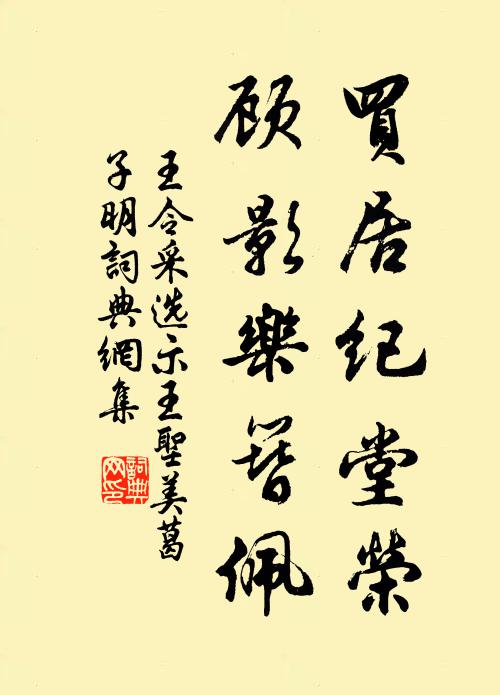 買居紀堂榮
顧影樂簪佩
王令采选示王聖美葛
子明詞典網集
詞典网印